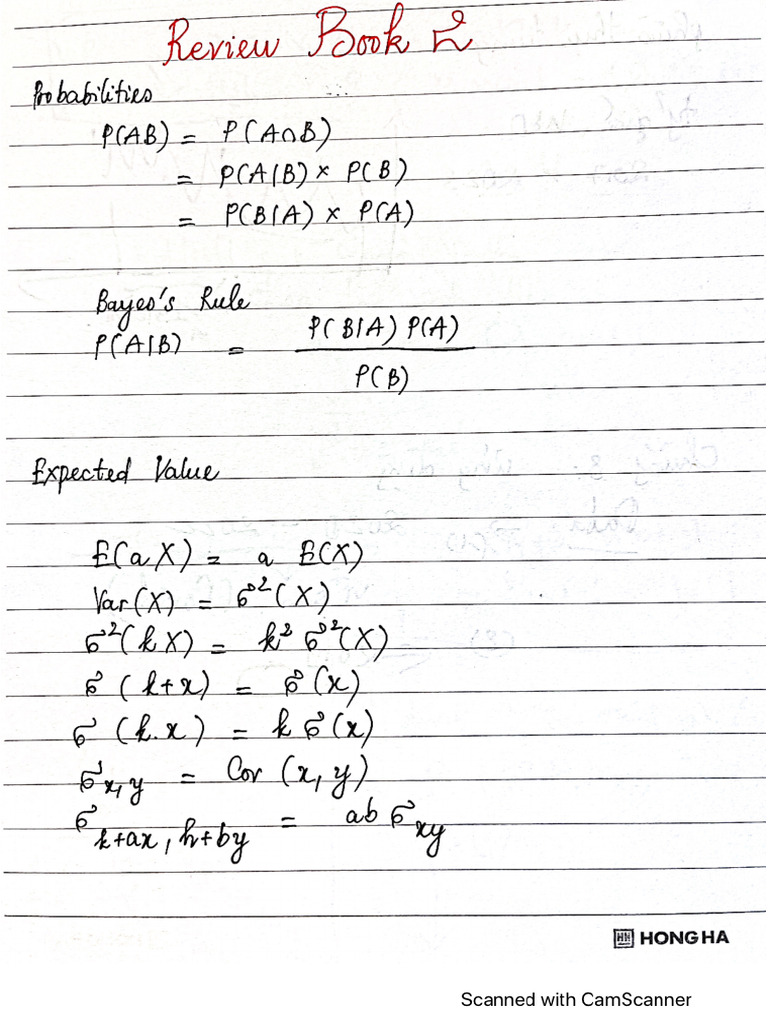 Review Book 2
Probabilities
P(AB) = P(A∩B)
= P(A|B) × P(B)
= P(B|A) × P(A)
Bayes's Rule
P(A|B) = P(B|A) P(A)
P(B)
Expected Value
E(aX) = a E(X)
Var(X) = σ²(X)
σ²(kX) = k² σ²(X)
σ (k+x) = σ (x)
σ (k.x) = k σ (x)
σ x,y = Cov (x, y)
σ k+ax, h+by = ab σ xy
HONG HA
Scanned with CamScanner